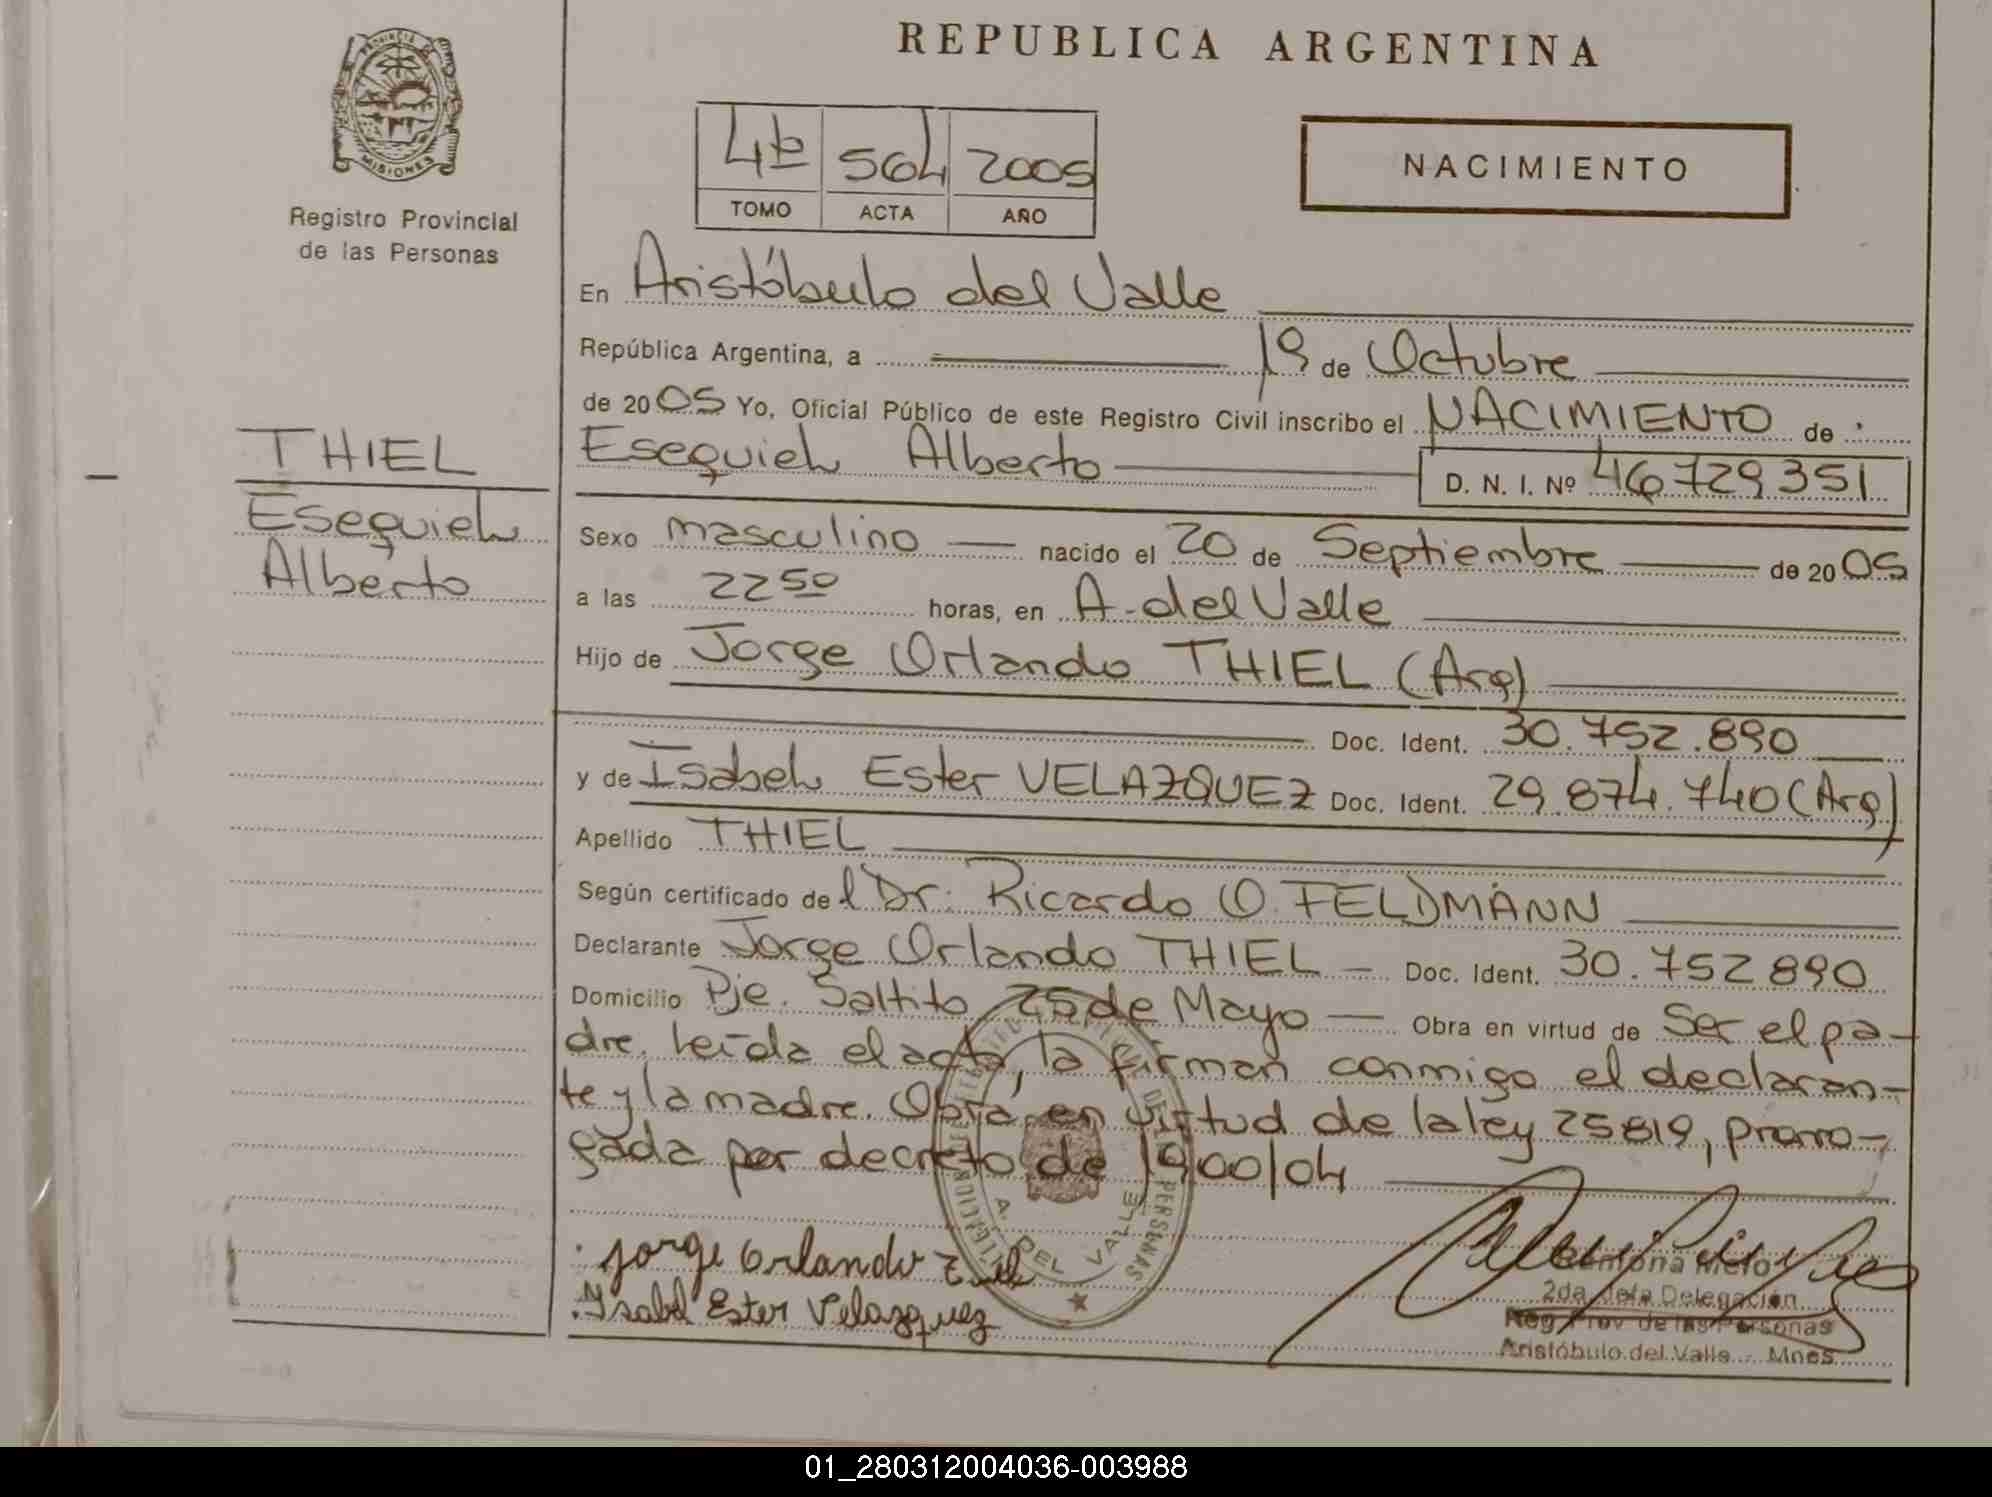 REPUBLICA ARGENTINA
PROVINCIA DE
MISIONES
Registro Provincial
de las Personas
4to 564 2005
TOMO ACTA AÑO
NACIMIENTO
En Aristóbulo del Valle
República Argentina, a 19 de Octubre
de 2005 Yo, Oficial Público de este Registro Civil inscribo el NACIMIENTO de
Esequiel Alberto D. N. I. Nº 46729351
THIEL
Esequiel
Alberto
Sexo masculino nacido el 20 de Septiembre de 2005
a las 22 50 horas, en A. del Valle
Hijo de Jorge Orlando THIEL (Arg)
Doc. Ident. 30.752.890
y de Isabel Ester VELAZQUEZ Doc. Ident. 29.874.740 (Arg)
Apellido THIEL
Según certificado del Dr. Ricardo O. FELDMANN
Declarante Jorge Orlando THIEL Doc. Ident. 30.752890
Domicilio Pje. Saltito 25 de Mayo Obra en virtud de Ser el pa-
dre. leída el acta, la firman conmigo el declaran-
te y la madre. Obra en virtud de la ley 25819, prorro-
gada por decreto de 1900/04
A. DEL VALLE
Jorge Orlando
Isabel Ester Velazquez
2da. Jefa Delegación
Reg. Prov. de las Personas
Aristóbulo del Valle - Mnes
01_280312004036-003988